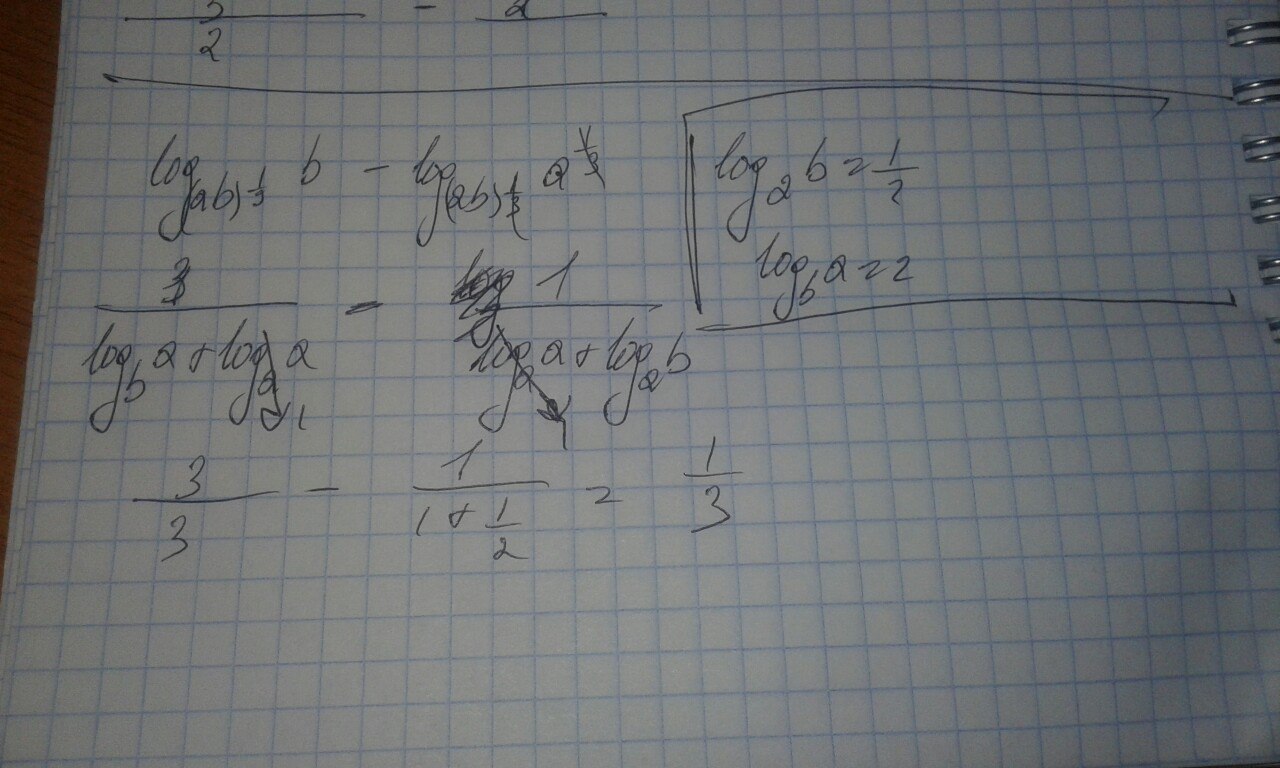 2
log_(ab)^1/3 b - log_(ab)^1/3 a^1/3
log_a b = 1/2
log_b a = 2
3/(log_b a + log_a a) - 1/(log_a a + log_a b)
1 1
3/3 - 1/(1 + 1/2) = 1/3